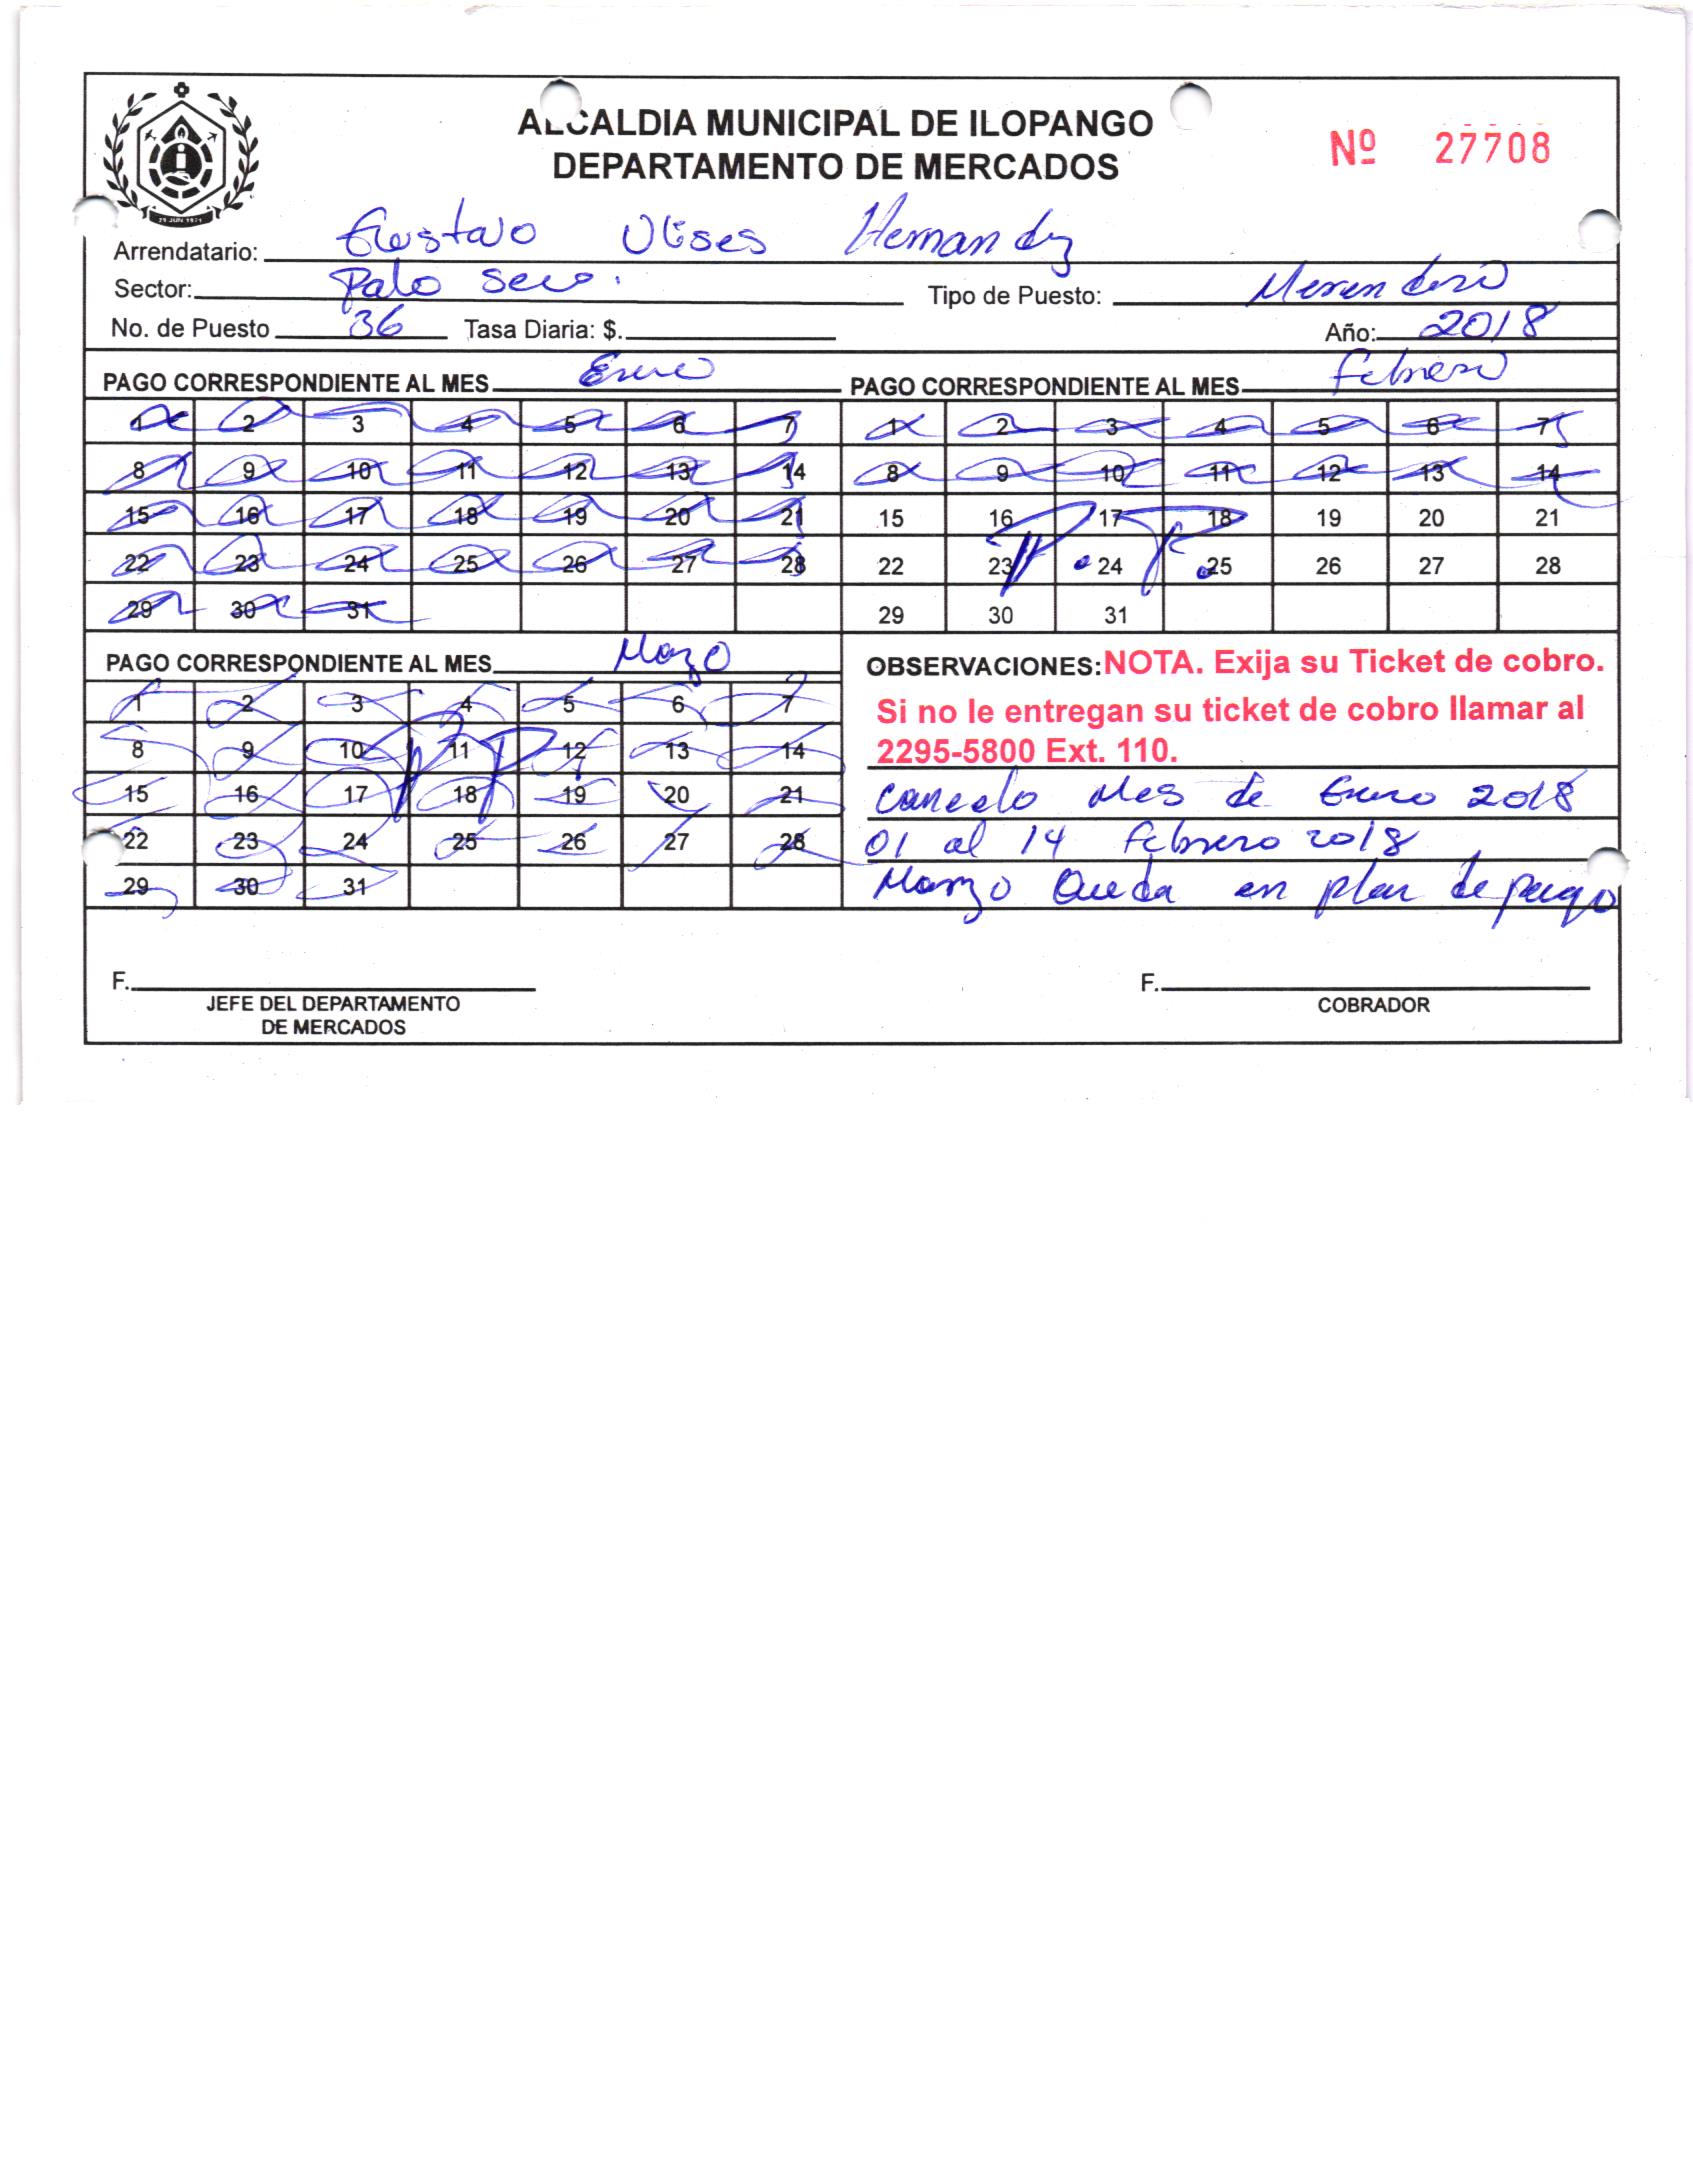 ALCALDIA MUNICIPAL DE ILOPANGO
DEPARTAMENTO DE MERCADOS
Nº 27708
25 JUN 1971
Arrendatario: Gustavo Ulises Hernandez
Sector: Palo Seco.
Tipo de Puesto: Merendero
No. de Puesto 36 Tasa Diaria: $.
Año: 2018
PAGO CORRESPONDIENTE AL MES Enero
1 2 3 4 5 6 7
8 9 10 11 12 13 14
15 16 17 18 19 20 21
22 23 24 25 26 27 28
29 30 31
PAGO CORRESPONDIENTE AL MES Febrero
1 2 3 4 5 6 7
8 9 10 11 12 13 14
15 16 17 18 19 20 21
22 23 24 25 26 27 28
29 30 31
P.P.
PAGO CORRESPONDIENTE AL MES Marzo
1 2 3 4 5 6 7
8 9 10 11 12 13 14
15 16 17 18 19 20 21
22 23 24 25 26 27 28
29 30 31
PP
OBSERVACIONES: NOTA. Exija su Ticket de cobro.
Si no le entregan su ticket de cobro llamar al
2295-5800 Ext. 110.
Cancelo Mes de Enero 2018
01 al 14 Febrero 2018
Marzo Queda en plan de pago
F.
JEFE DEL DEPARTAMENTO
DE MERCADOS
F.
COBRADOR